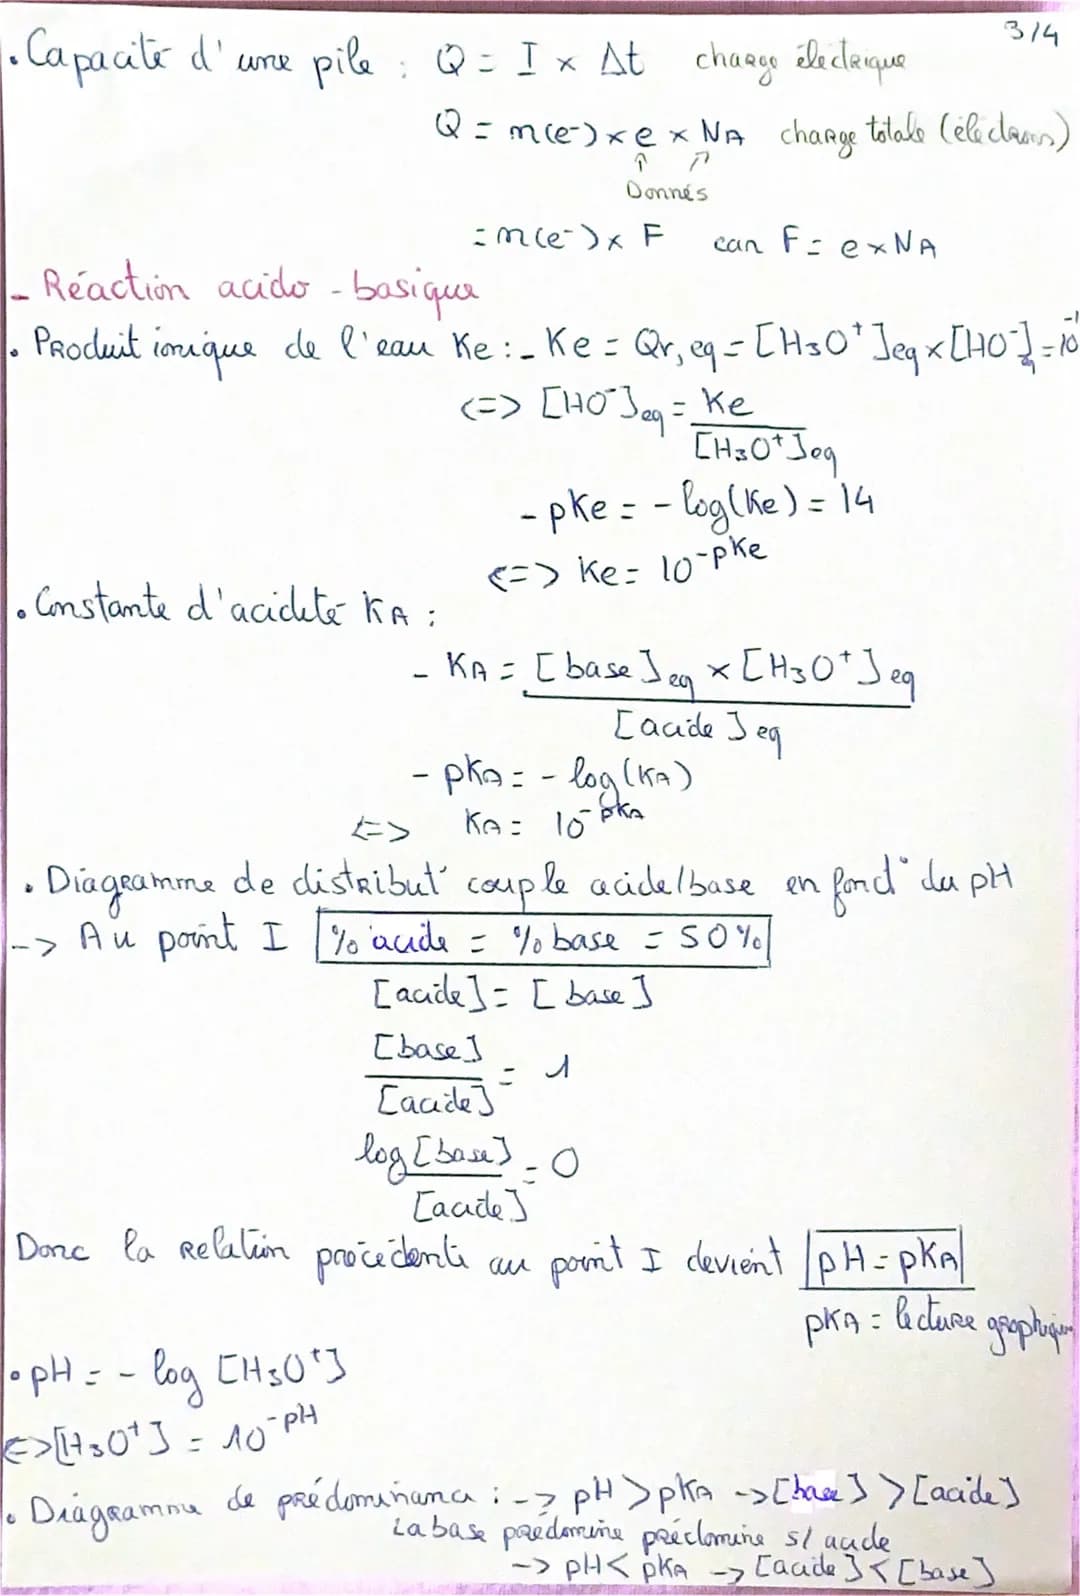 3/4
• Capacité d'une pile : Q = I × Δt charge électrique
Q = n(e-) × e × NA charge totale (électrons)
↑ ↗
Donnés
= n(e-) × F car F = e × NA
- Réaction acido-basique
• Produit ionique de l'eau Ke : - Ke = Qr,eq = [H3O+]eq × [HO-]eq = 10-1
<=> [HO-]eq = Ke
[H3O+]eq
- pKe = - log(Ke) = 14
<=> Ke = 10-pKe
• Constante d'acidité KA :
- KA = [base]eq × [H3O+]eq
[acide]eq
- pKA = - log(KA)
<=> KA = 10-pKA
• Diagramme de distribut° couple acide/base en fonct° du pH
--> Au point I % acide = % base = 50%
[acide] = [base]
[base]
[acide] = 1
log [base] = 0
[acide]
Donc la relation précédente au point I devient pH = pKA
pKA = lecture graphique
• pH = - log [H3O+]
<=> [H3O+] = 10-pH
• Diagramme de prédominance : --> pH > pKA --> [base] > [acide]
La base prédomine prédomine s/ acide
--> pH < pKA --> [acide] < [base]